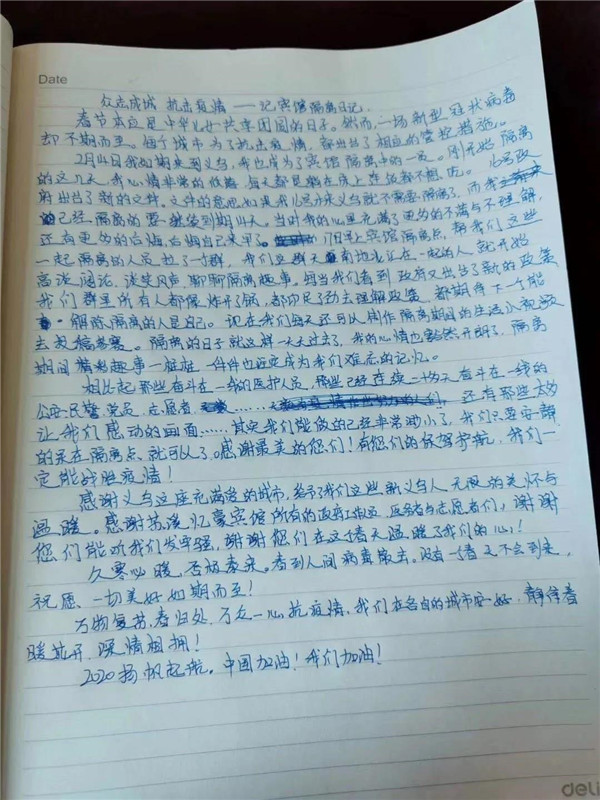 Date
众志成城 抗击疫情 ——记宾馆隔离日记.
春节本应是中华儿女共享团圆的日子。然而,一场新型冠状病毒
却不期而至。每个城市为了抗击疫情,都出台了相应的管控措施。
2月14日我如期来到义乌,我也成为了宾馆隔离中的一员。刚开始隔离
的这几天,我心情非常的低落,每天都是躺在床上连饭都不想吃。
府出台了新的文件。文件的意思如果我 来义乌就不需要隔离了,而我
已经隔离的要继续到期14天。当时我的心里充满了更多的不满与不理解,
还有更多的后悔,后悔自己来早了。 宾馆隔离点,帮我们这些
一起隔离的人员拉了一个群,我们这群天南地北汇在一起的人就开始
高谈阔论,谈笑风声,聊聊隔离趣事。每当我们看到政府又出台了新的政策
我们群里所有人都像炸开了锅,都卯足了劲去理解政策,都期待下一个能
解除隔离的人是自己。现在我们每天还可以制作隔离期间的生活小视频
去投稿 。隔离的日子就这样一天天过去了,我的心情也豁然开朗了,隔离
期间 趣事一桩桩一件件也注定成为我们难忘的记忆。
相比起那些奋斗在一线的医护人员,那些已经连续 天奋斗在一线的
公安民警、党员、志愿者 …… 还有那些太多
让我们感动的画面……其实我们能做的已经非常渺小了,我们只要安静
的呆在隔离点,就可以了。感谢最美的您们!有您们的保驾护航,我们一
定能战胜疫情!
感谢义乌这座充满爱的城市,给予了我们这些新义乌人无限的关怀与
温暖。感谢苏溪忆豪宾馆所有的政府工作员,医务者与志愿者们,谢谢
您们能听我们发牢骚,谢谢您们在这个春天温暖了我们的心!
久寒必暖,否极泰来。看到人间病毒散去。没有一个春天不会到来,
祝愿、一切美好如期而至!
万物复苏,春归处,万众一心,抗疫情,我们在各自的城市安好,静待春
暖花开,深情相拥!
2020扬帆起航。中国加油!我们加油!
deli